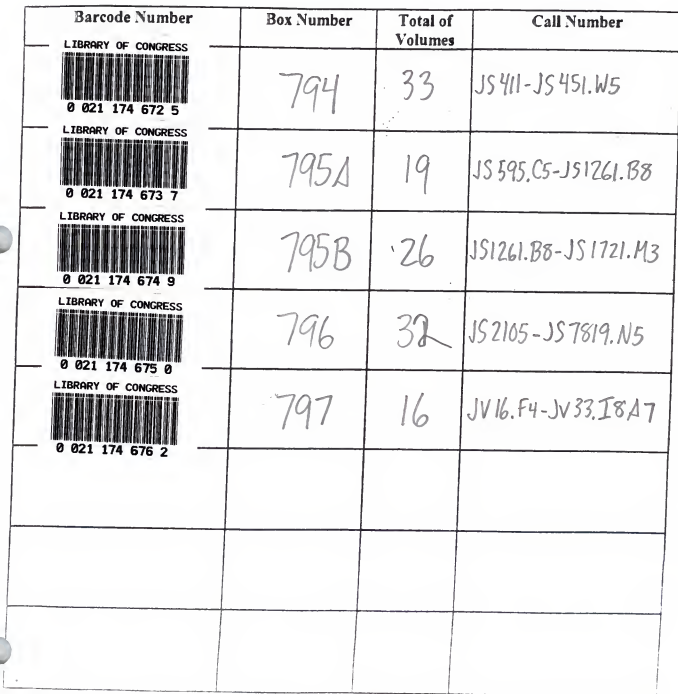 Barcode Number Box Number Total of Volumes Call Number
LIBRARY OF CONGRESS
0 021 174 672 5 794 33 JS411-JS451.W5
LIBRARY OF CONGRESS
0 021 174 673 7 795A 19 JS595.C5-JS1261.B8
LIBRARY OF CONGRESS
0 021 174 674 9 795B 26 JS1261.B8-JS1721.M3
LIBRARY OF CONGRESS
0 021 174 675 0 796 32 JS2105-JS7819.N5
LIBRARY OF CONGRESS
0 021 174 676 2 797 16 JV16.F4-JV33.I8A7